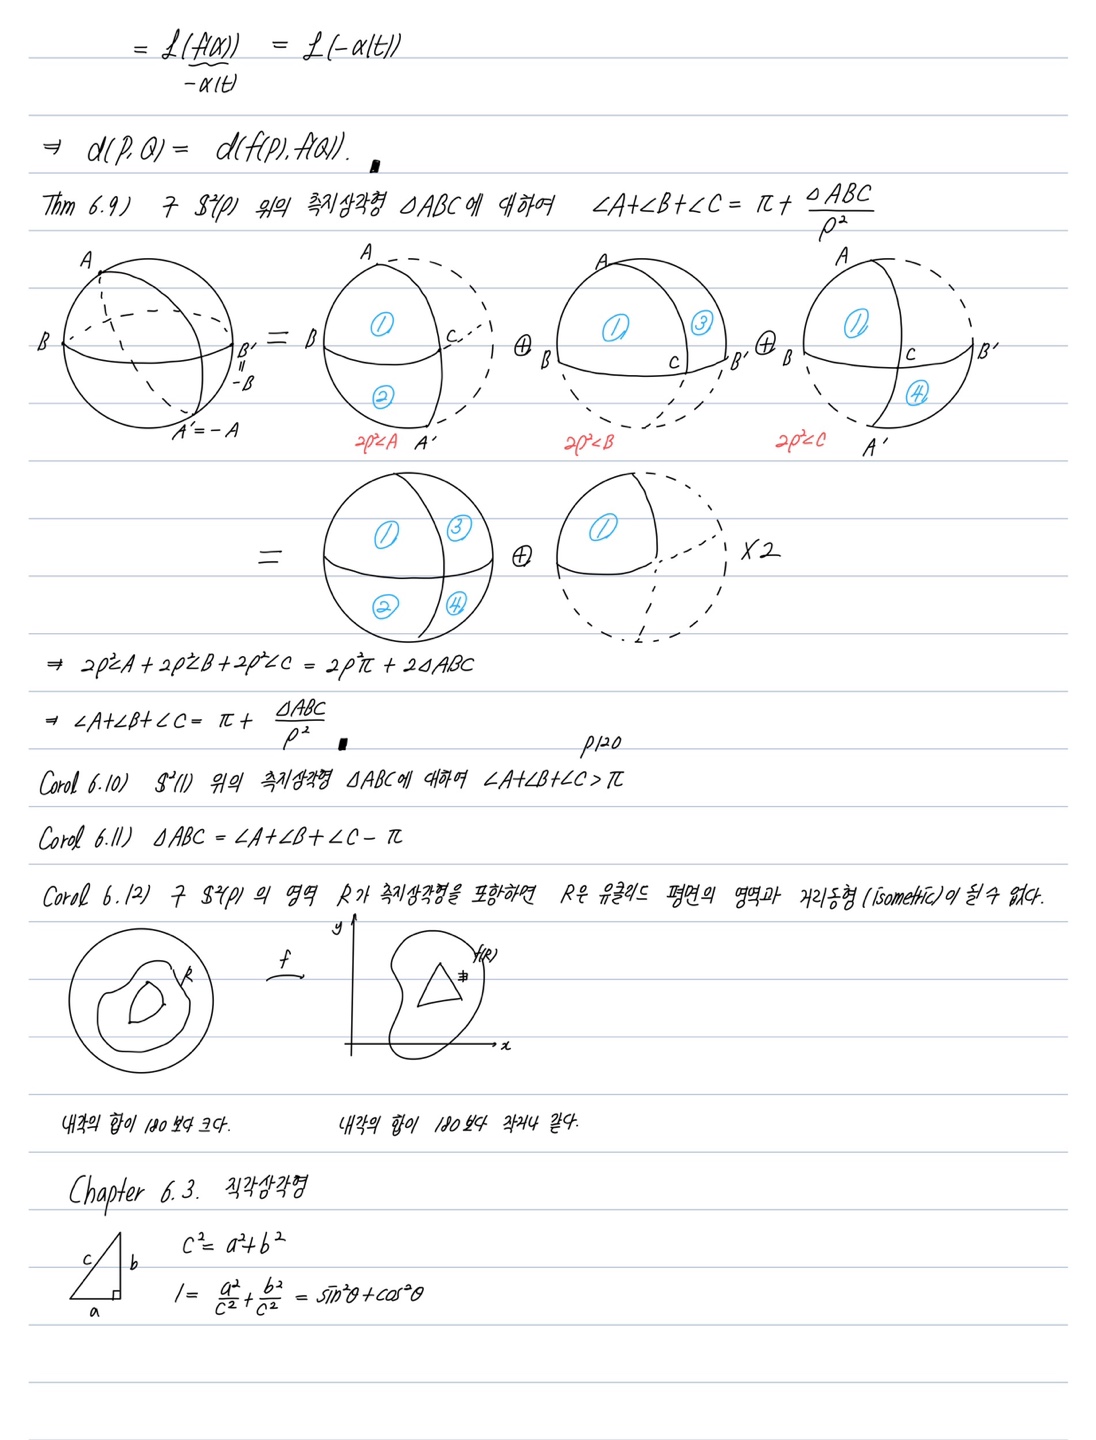 = ℒ(f(α)) = ℒ(-α(t))
-α(t)
⇒ d(P,Q) = d(f(P), f(Q)). ∎
Thm 6.9) 구 S²(ρ) 위의 측지삼각형 △ABC에 대하여 ∠A+∠B+∠C = π + △ABC/ρ²
A A A A
① ① ③ ①
B B' = B C ⊕ B C B' ⊕ B C B'
॥
-B
② ④
A' = -A 2ρ²∠A A' 2ρ²∠B 2ρ²∠C A'
= ① ③ ⊕ ① ×2
② ④
⇒ 2ρ²∠A + 2ρ²∠B + 2ρ²∠C = 2ρ²π + 2△ABC
⇒ ∠A+∠B+∠C = π + △ABC/ρ² ∎
p120
Corol 6.10) S²(1) 위의 측지삼각형 △ABC에 대하여 ∠A+∠B+∠C > π
Corol 6.11) △ABC = ∠A+∠B+∠C - π
Corol 6.12) 구 S²(ρ) 의 영역 R가 측지삼각형을 포함하면 R은 유클리드 평면의 영역과 거리동형(isometric)이 될 수 없다.
y
R f f(R)
x
내각의 합이 180 보다 크다. 내각의 합이 180 보다 작거나 같다.
Chapter 6.3. 직각삼각형
c b c² = a²+b²
a 1 = a²/c² + b²/c² = sin²θ + cos²θ